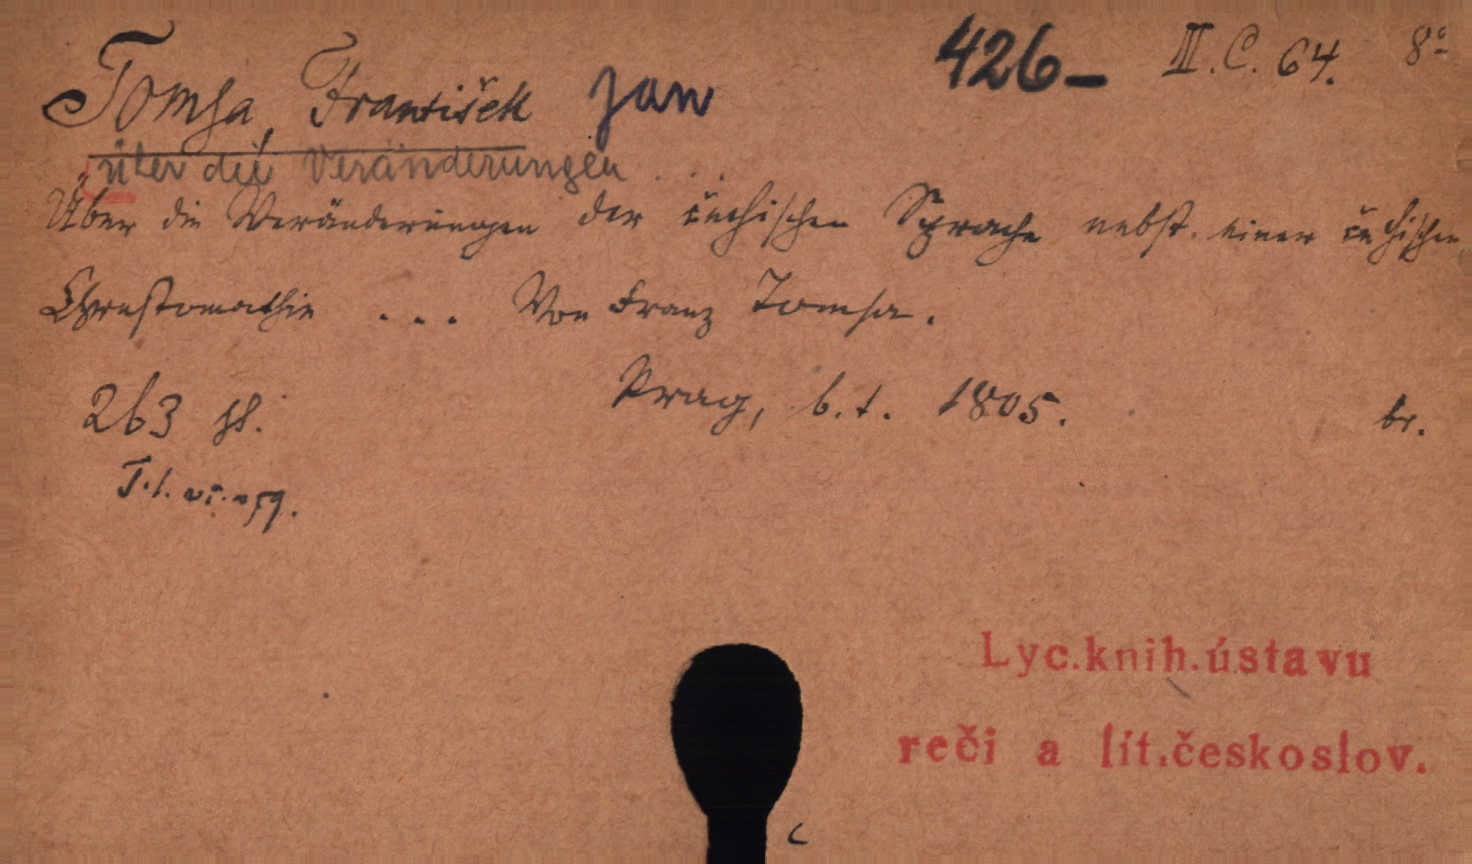 Tomsa, František Jan 426- III.C.64. 8°
über die Veränderungen ...
Über die Veränderungen der čechischen Sprache nebst einer čechischen
Chrestomathie ... Von Franz Tomsa.
263 st. Prag, b.t. 1805. br.
Lyc.knih.ústavu
reči a lit.českoslov.